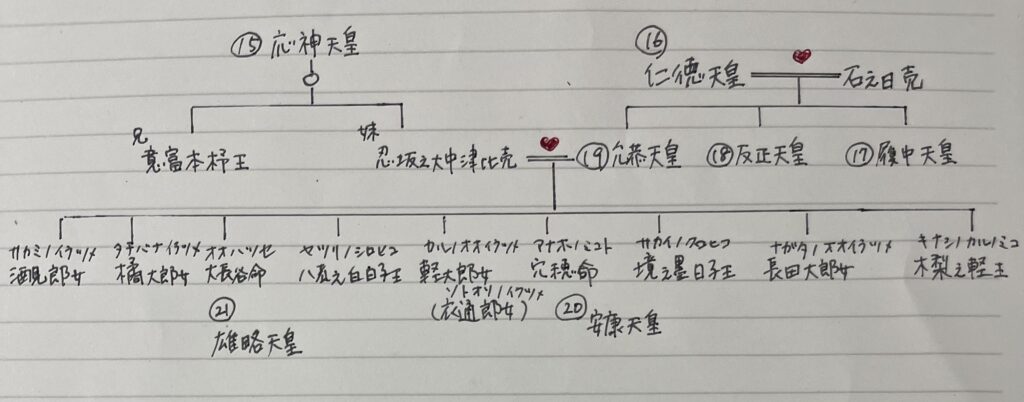 ⑮ 応神天皇
⑯
仁徳天皇 石之日売
兄 妹
意富本杼王 忍坂之大中津比売 ⑲允恭天皇 ⑱反正天皇 ⑰履中天皇
サカミノイラツメ タチバナイラツメ オオハツセ ヤツリノシロヒコ カルノオオイラツメ アナホノミコト サカイノクロヒコ ナガタノオオイラツメ キナシノカルノミコ
酒見郎女 橘大郎女 大長谷命 八瓜之白日子王 軽大郎女 穴穂命 境之黒日子王 長田大郎女 木梨之軽王
ソトオリノイラツメ
(衣通郎女)
㉑ ⑳
雄略天皇 安康天皇